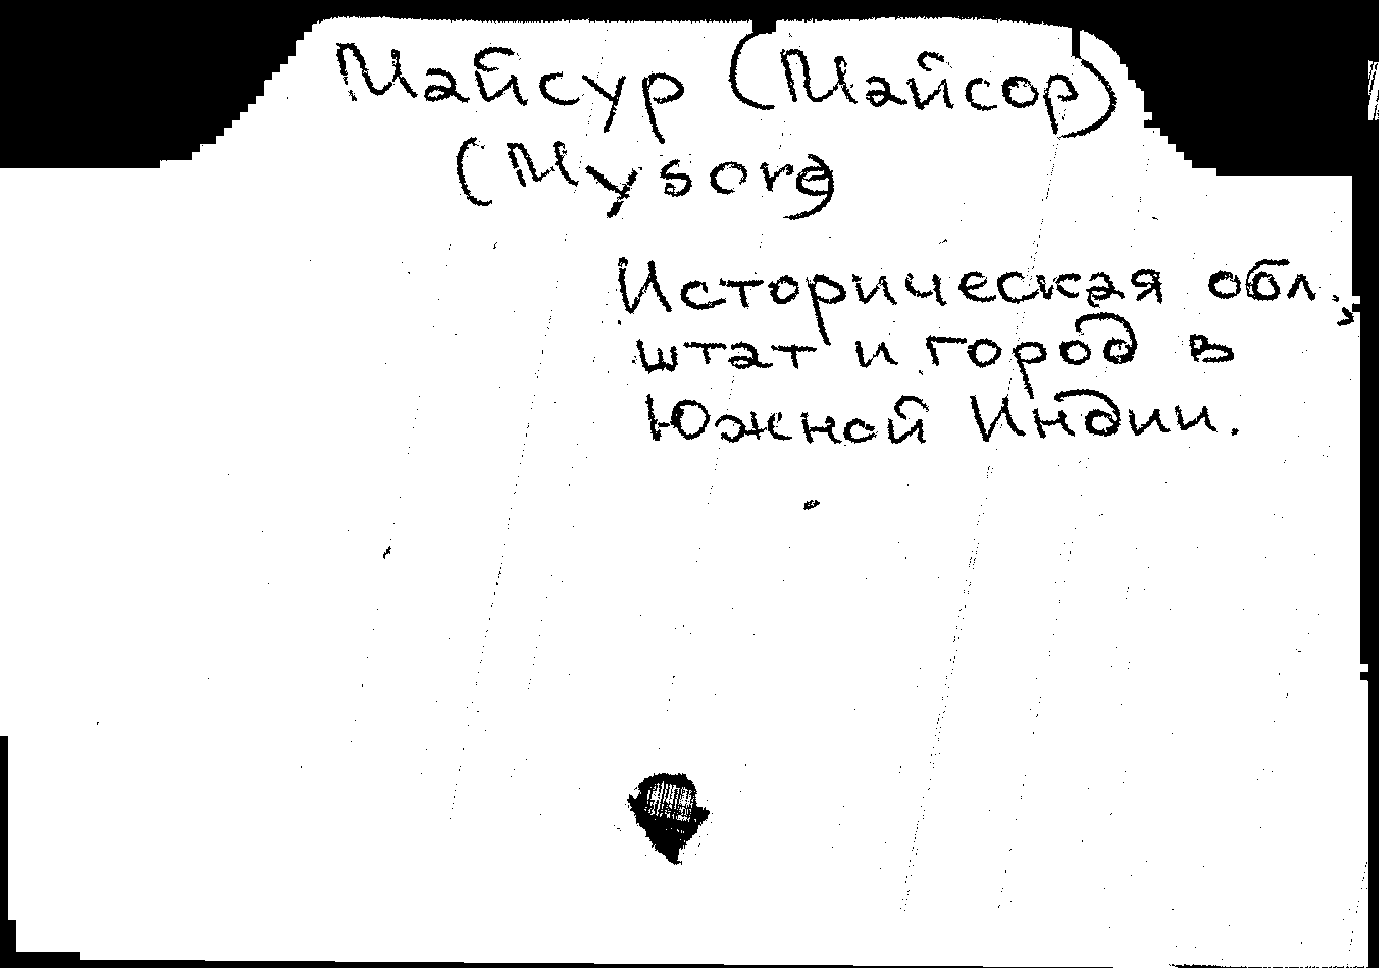 Майсур (Майсор)
(Mysore)
Историческая обл.,
штат и город в
Южной Индии.